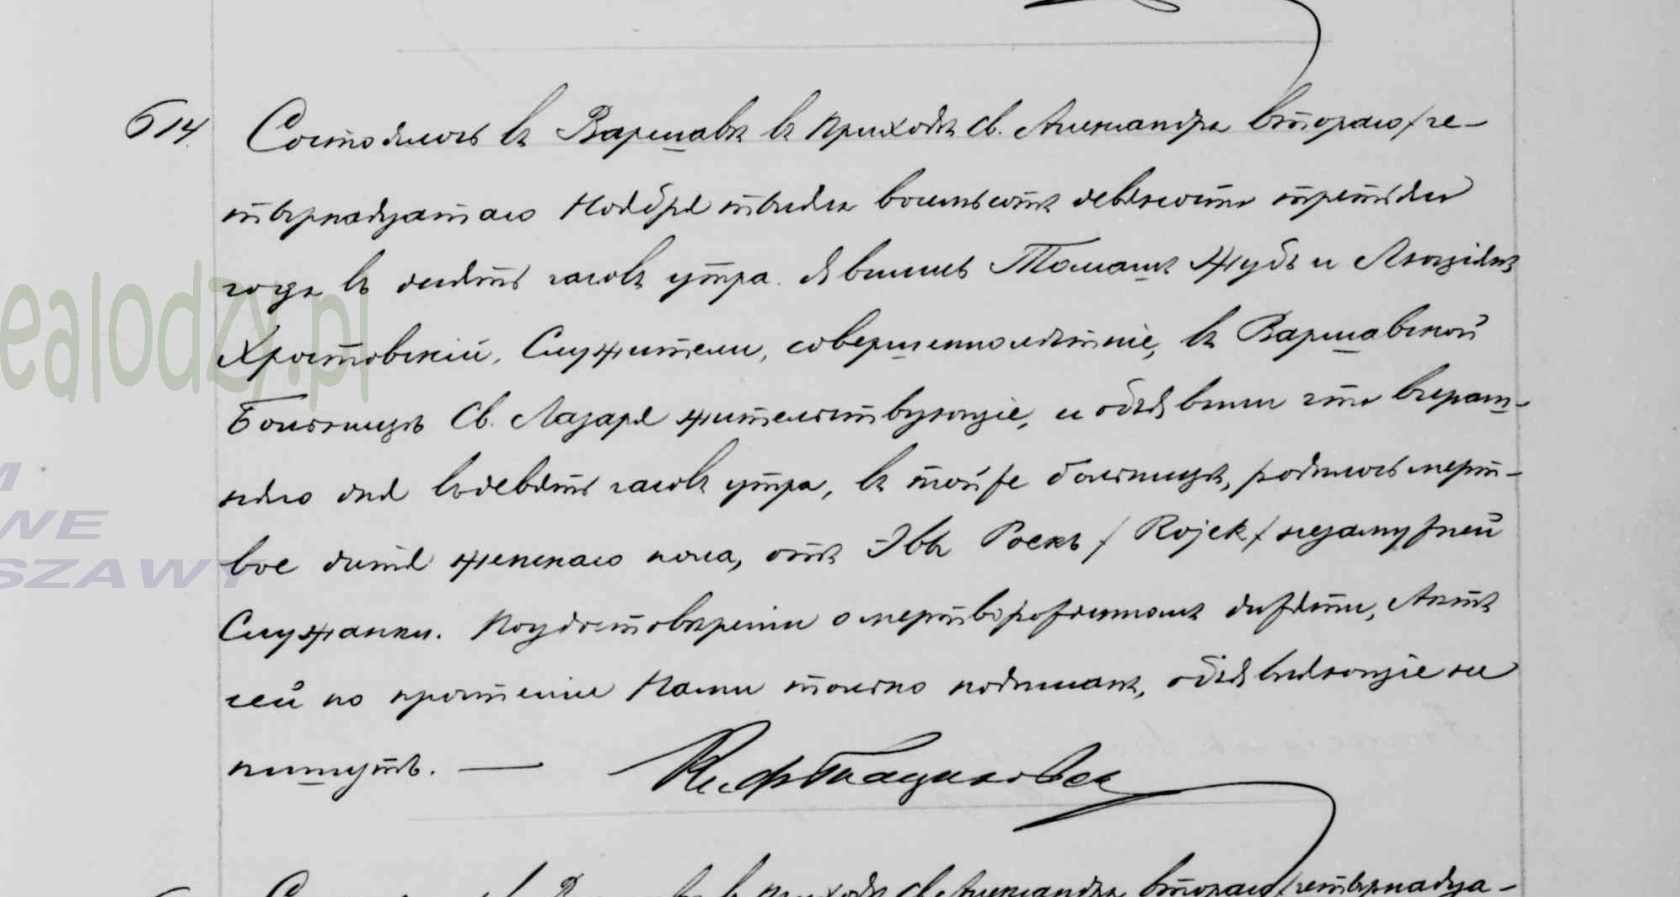 614.
Состоялось въ Варшавѣ въ приходѣ св. Александра втораго/че-
твернадцатаго Ноября тысяча восемьсотъ девяносто третьяго
года въ десять часовъ утра. Явились Томашъ Жубъ и Люціянъ
Хростовскій, Служители, совершеннолѣтніе, въ Варшавской
Больницѣ Св. Лазаря жительствующіе, и объявили что вчераш-
няго дня въ девять часовъ утра, въ той же больницѣ, родилось мерт-
вое дитя женскаго пола, отъ Эвы Роекъ /Rojek/ незамужней
Служанки. По удостовѣреніи о мертворожденномъ дитяти, Актъ
сей по прочтеніи Нами только подписанъ, объявляющіе не
пишутъ. —
ealodzy.pl
M
WE
SZAWY
Состоялось въ Варшавѣ въ приходѣ св. Александра втораго/четвернадца-